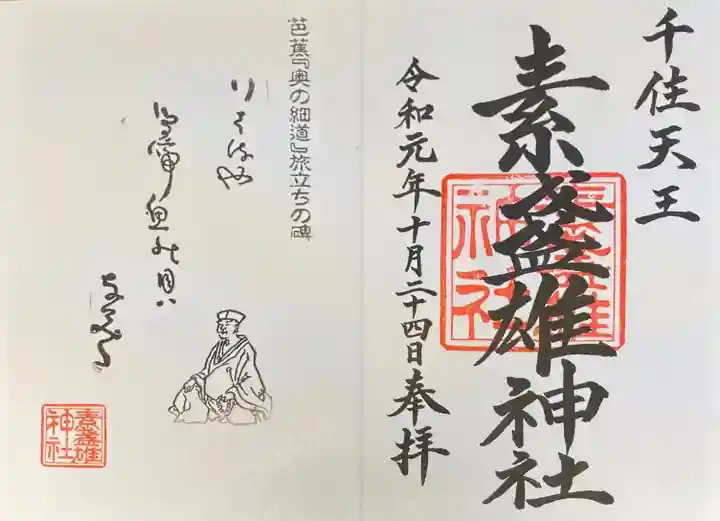 千住天王
素盞雄神社
令和元年十月二十四日奉拝
素盞雄
神社
芭蕉『奥の細道』旅立ちの碑
行はるや
鳥啼魚の目ハ
なみだ
素盞雄
神社